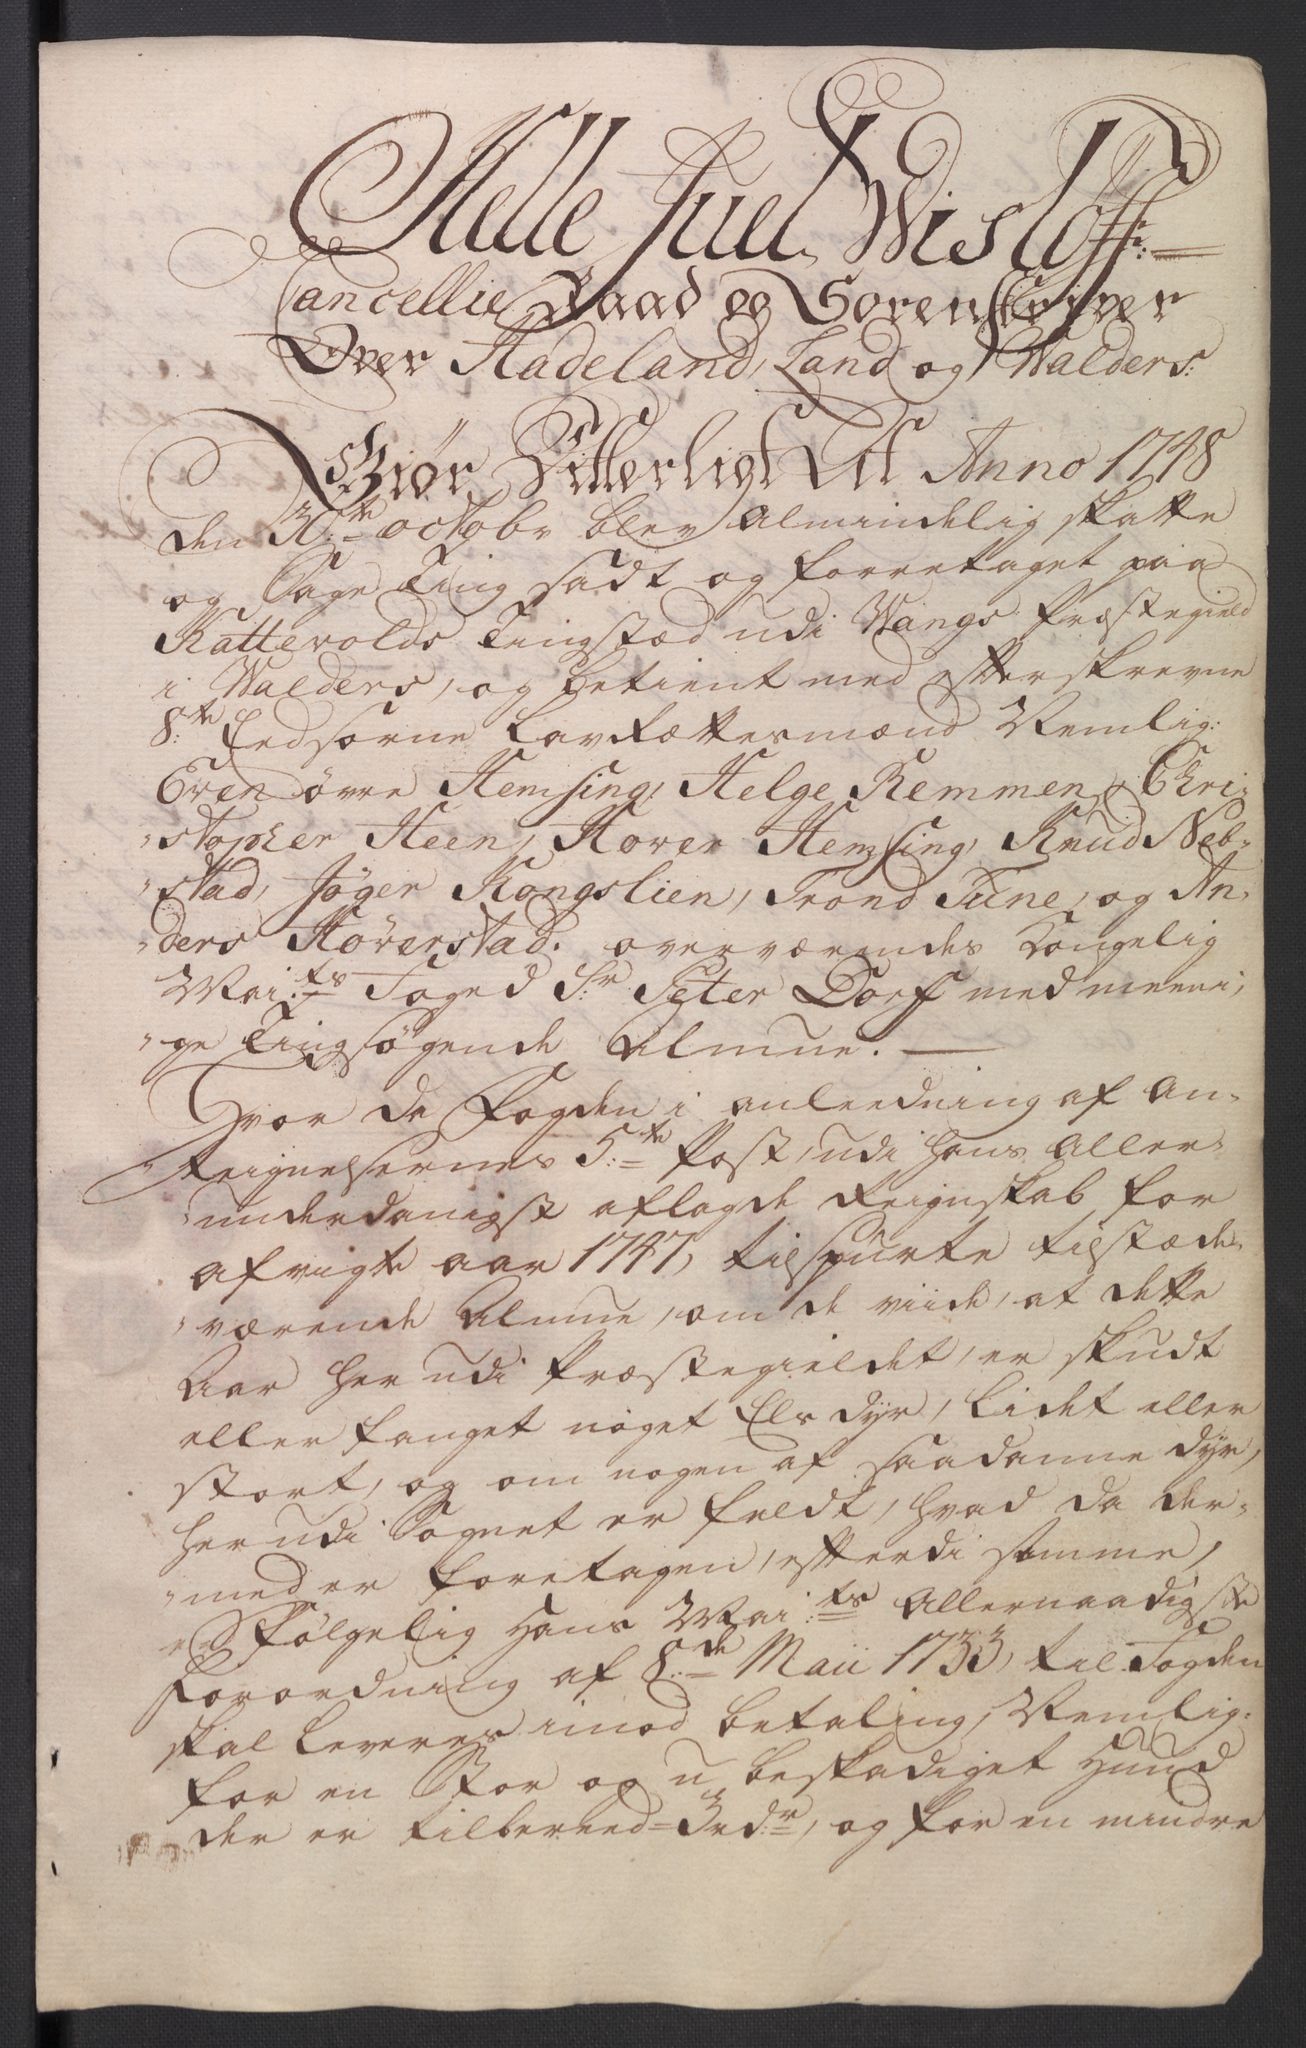 Helle Juel Wisloff:
Cancellie Raad og Sorenskriver
Over Hadeland, Land og Walders:
Giør Vitterligt At Anno 1748
den 30:te octobr blev Almindelig Skatte
og Sage Ting sadt og forretaget paa
Kattevolds Tingstæd udi Wangs Præstegield
i Walders, og betient med efterskrevne
8:te Eedsorne Lavrættesmænd Nemlig:
Even øvre Hemsing, Helge Remmen, Chri-
-stopher Heen, Hover Hemsing, Knud Neb-
-stad, Jøger Kongslien, Trond Tune, og An-
-ders Høverstad. overværendes Kongelig
Mai:ts Foged Sr Peter Dorf med meeni-
-ge Tingsøgende Almue.
Hvor da Fogden i anleedning af An-
-teignelsernes 5:te Post, udi hans Aller-
-underdanigst aflagde Reignskab for
afvigte aar 1747, tilspurte tilstæde-
-værende Almue, om de viide, at dette
Aar her udi Præstegieldet, er skudt
eller fanget noget Elsdyr, lidet eller
stort, og om nogen af saadanne dyr,
her udi Sognet er feldt, hvad da der-
-med er foretagen, efterdi samme,
følgelig Hans Mai:ts Allernaadigste
Forordning af 8:de Maii 1733, til Fogden
skal leveres imod betaling, Nemlig:
for en Stor og u-beskadiget Huud
der er tilbereed 3 rd:r, og for en mindre